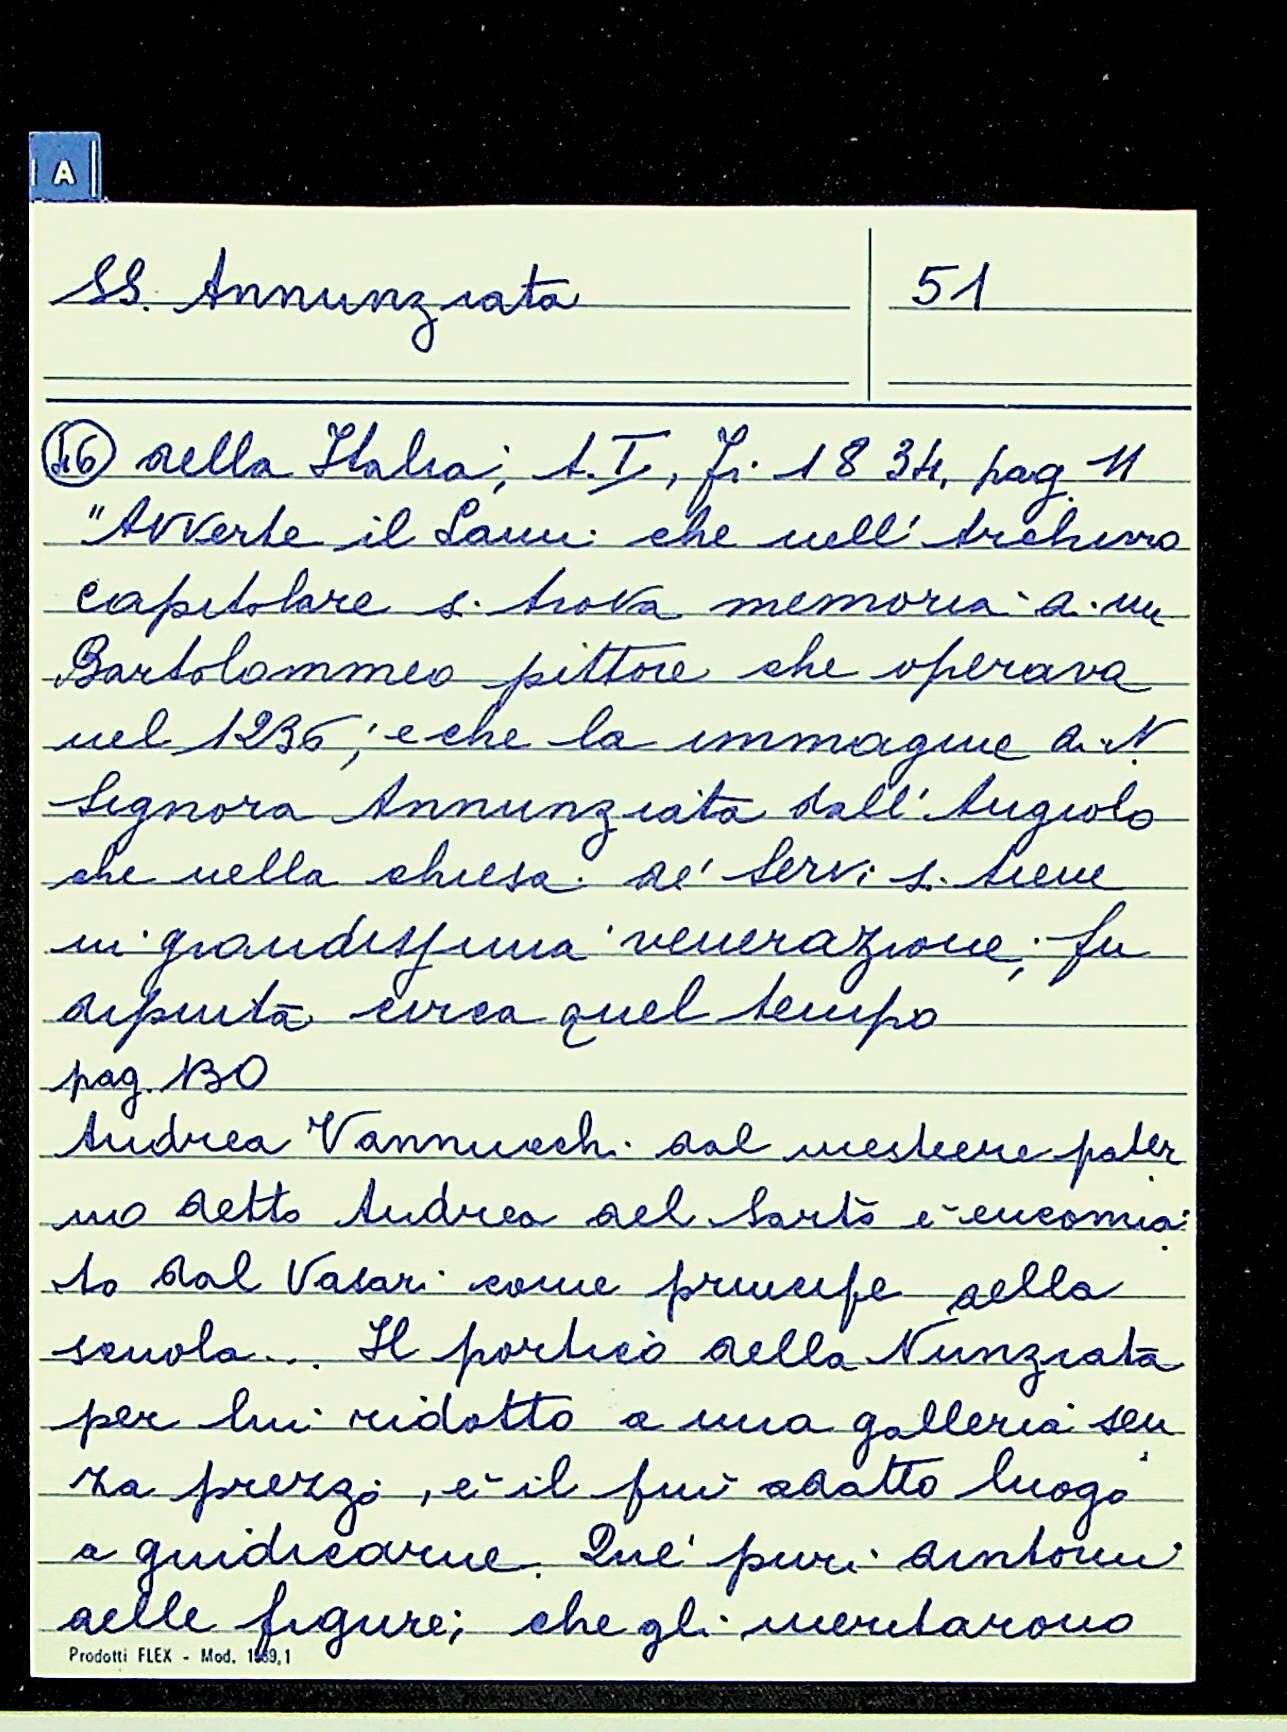 A
SS. Annunziata
51
46 della Italia, t. I, Fi. 1834, pag. 11
"Avverte il Lami che nell'Archivio
capitolare si trova memoria di un
Bartolommeo pittore che operava
nel 1236; e che la immagine di N.
Signora Annunziata dall'Angiolo
che nella chiesa de' Servi si tiene
in grandissima venerazione, fu
dipinta circa quel tempo
pag. 130
Andrea Vannucchi dal mestiere pater
no detto Andrea del Sarto è encomia
to dal Vasari come principe della
scuola... Il portico della Nunziata
per lui ridotto a una galleria sen
za prezzo, è il più adatto luogo
a giudicarne. Que' puri dintorni
delle figure; che gli meritarono
Prodotti FLEX - Mod. 1989,1